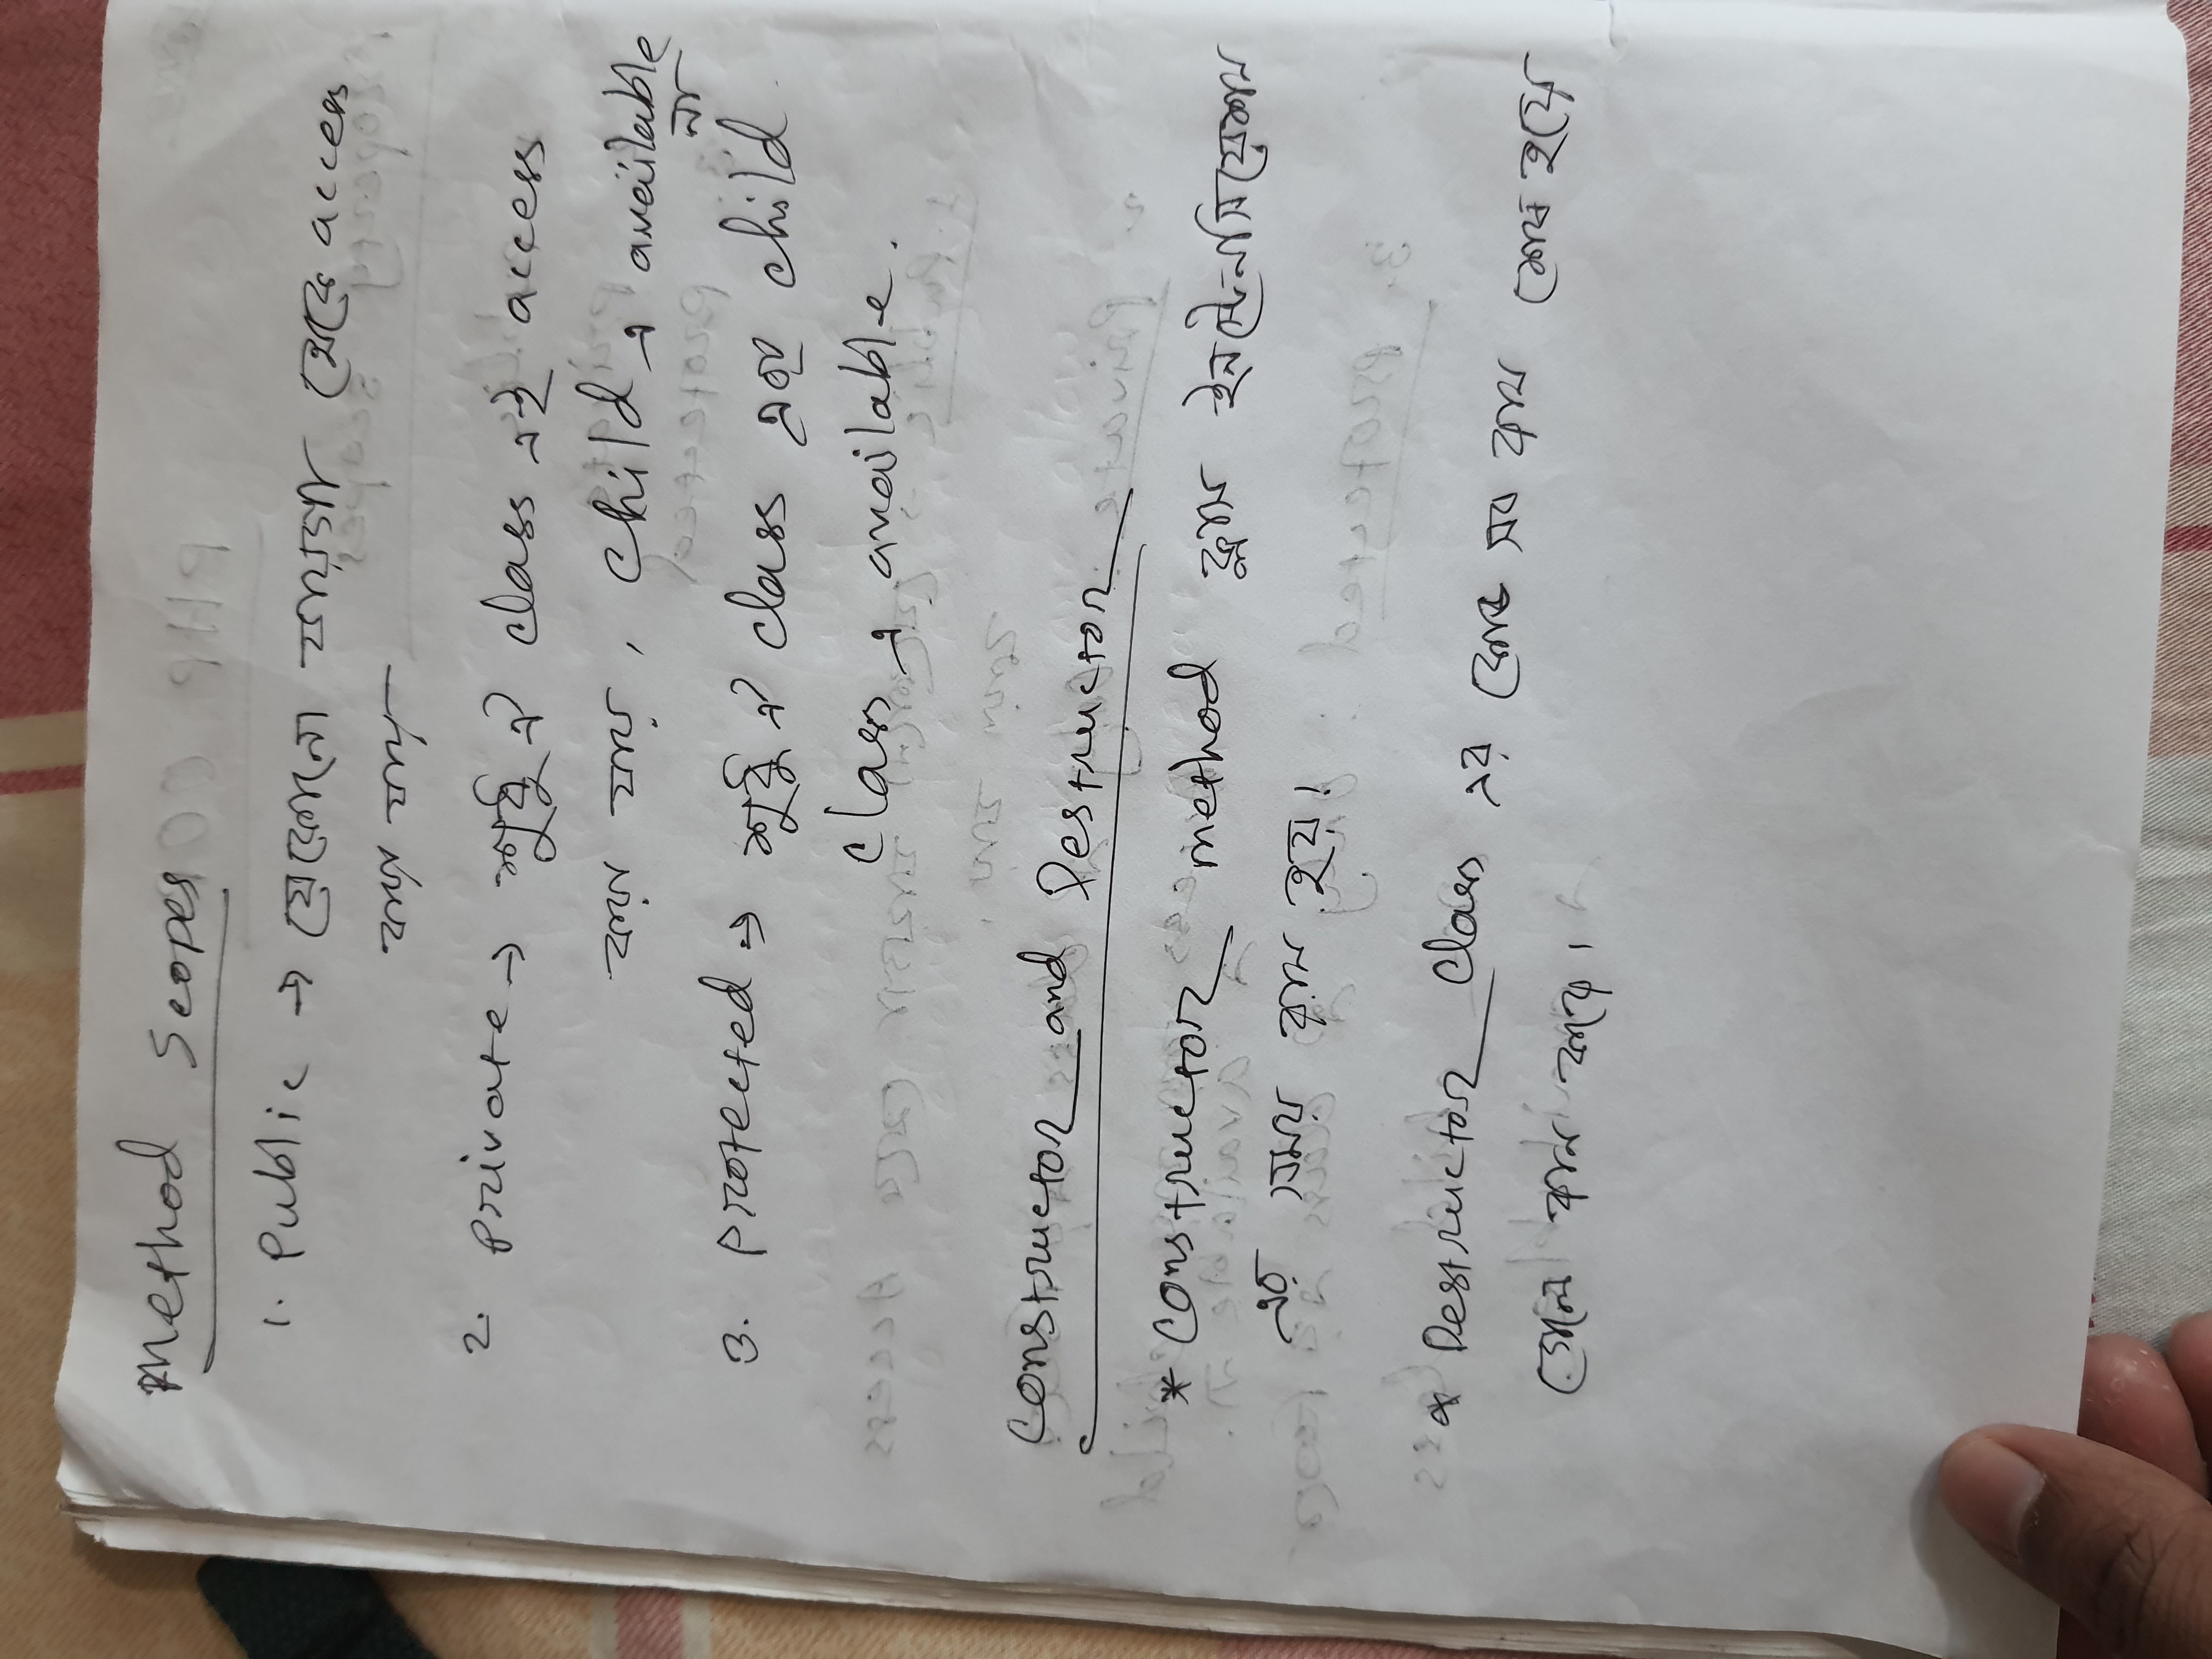 Method Scopes
1. Public → যেকোনো যায়গা থেকে access
করা যায়
2. private → শুধু ঐ class এই access
করা যায়, child এ available
না
3. protected → শুধু ঐ class এবং child
class এ available.
Constructor and Destructor
* Constructor method ক্লাস ইনস্টেনসিয়েশান
এর সময় কাল হয়।
* Destructor Class এর কোড সব কাজ শেষ হয়ে
গেলে কাজ করে।